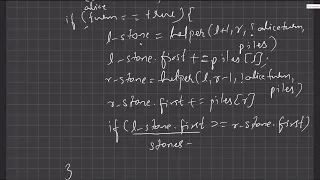 alice
if (turn == true) {
l-stone = helper(l+1, r, !aliceturn, piles)
l-stone.first += piles[l];
r-stone = helper(l, r-1, !aliceturn, piles)
r-stone.first += piles[r]
if (l-stone.first >= r-stone.first)
stones -
}